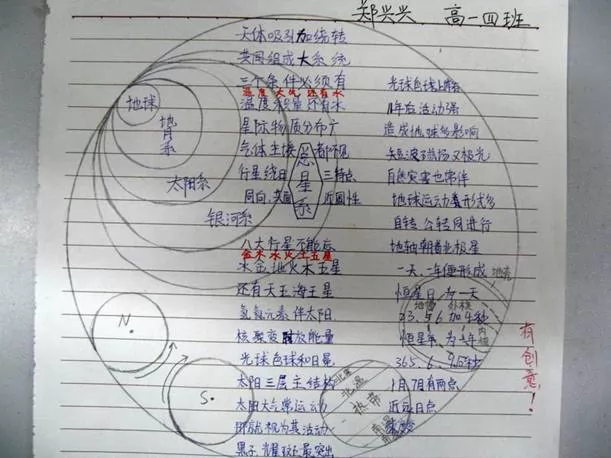 郑兴兴 高一四班
天体吸引加绕转
共同组成大系统
三个条件必须有
温度 大气 还有水
温度 质量 还有水
星际物质分布广
气体主接 都不见
行星绕日 三特点
同向、共面 近圆性
八大行星不能忘
金木水火土五星
水金地火木土星
还有天王海王星
氢氦元素伴太阳
核聚变 释放能量
光球色球和日冕
太阳三层主结构
太阳大气常运动
黑子 耀斑最突出
光球色球上
11年后活动强
造成地球多影响
短波 磁场 又极光
自然灾害也常伴
地球运动表形式多
自转 公转同进行
地轴朝着北极星
一天、一年便形成
恒星日为一天
23.56.加4秒
恒星年为一年
365.6.9.10秒
1月 7月有两点
近远日点
总星系
地球
地月系
太阳系
银河系
N
S
地壳
地幔
外核
北温
热带
有创意!